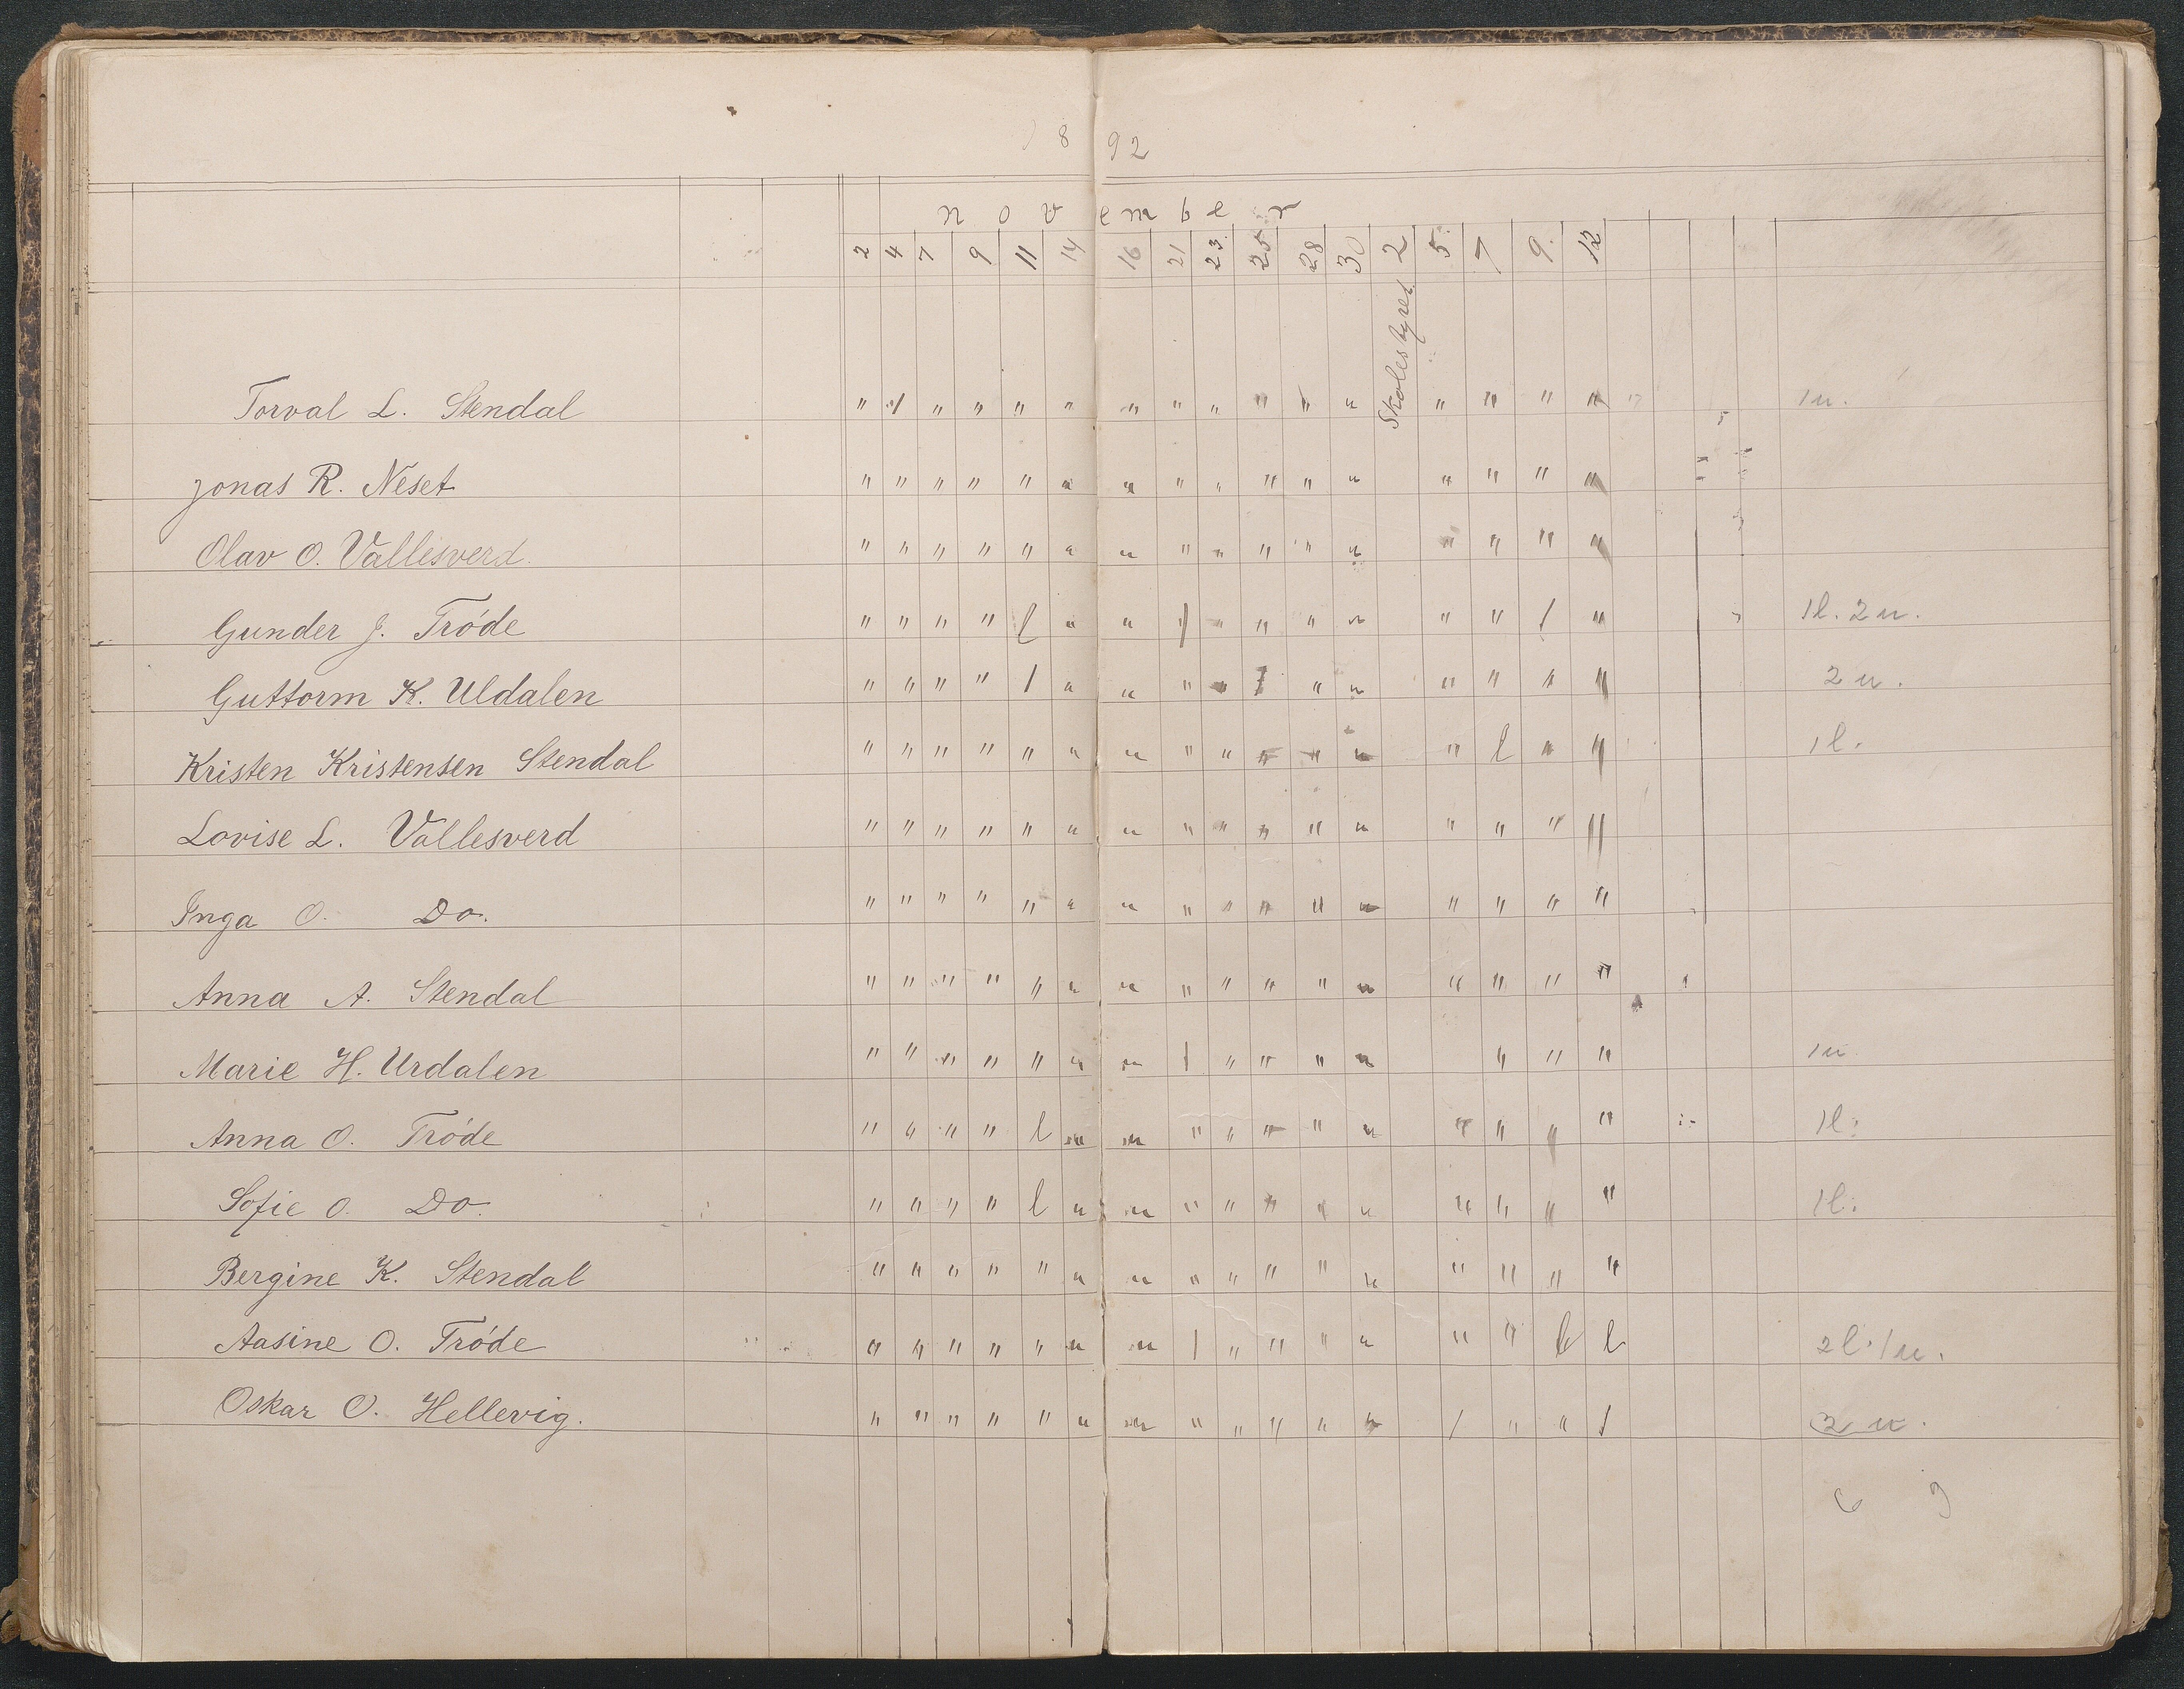 1892
november
2 4 7 9 11 14 16 21 23. 25. 28 30 2 5. 7 9. 12
Skolestyret
Torval L. Stendal " / " " " " " " " " " " " " " " 1u.
Jonas R. Neset " " " " " " " " " " " " " " " "
Olav O. Vallesverd. " " " " " " " " " " " " " " " "
Gunder J. Tróde " " " " l " " / " " " " " " / " 1l. 2u.
Guttorm K. Uldalen " " " " / " " " " / " " " " " " 2u.
Kristen Kristensen Stendal " " " " " " " " " " " " " l " " 1l.
Lovise L. Vallesverd " " " " " " " " " " " " " " " "
Inga O. Do. " " " " " " " " " " " " " " " "
Anna A. Stendal " " " " " " " " " " " " " " " "
Marie H. Urdalen " " " " " " " / " " " " " " " 1u.
Anna O. Tróde " " " " l " " " " " " " " " " " 1l.
Sofie O. Do. " " " " l " " " " " " " " " " " 1l.
Bergine K. Stendal " " " " " " " " " " " " " " " "
Aasine O. Tróde " " " " " " " / " " " " " " l l 2l. 1u.
Oskar O. Hellevig. " " " " " " " " " " " " / " " / 2u.
6 9